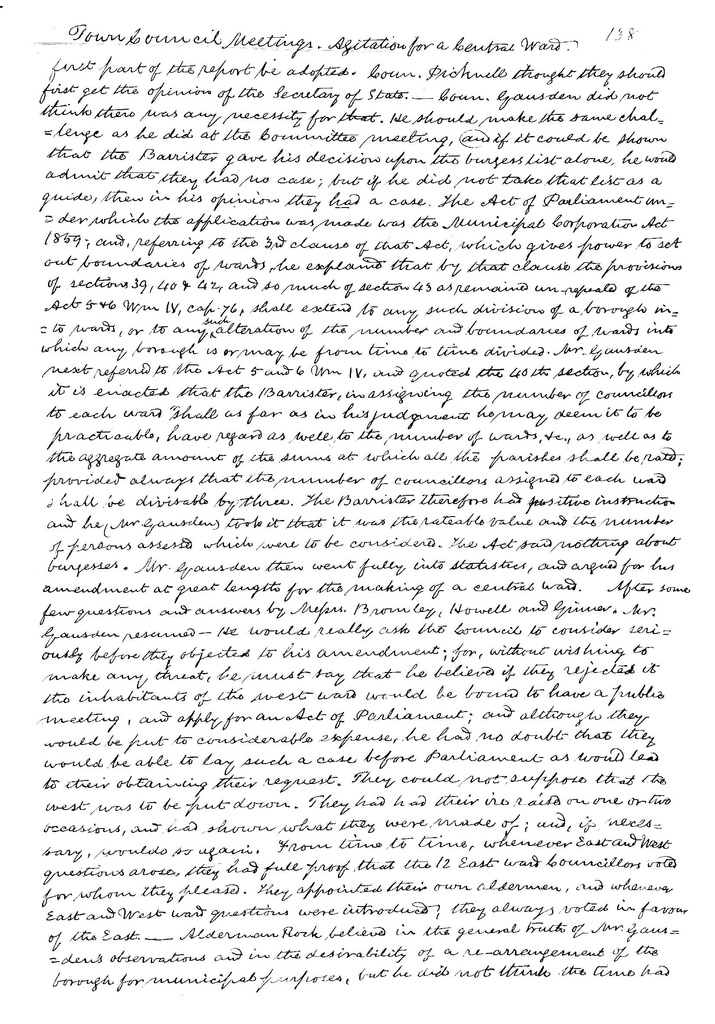 Town Council Meetings. Agitation for a Central Ward. 138
first part of the report be adopted. Coun. Picknell thought they should
first get the opinion of the Secretary of State. — Coun. Gausden did not
think there was any necessity for that. He should make the same chal-
=lenge as he did at the Committee meeting, and if it could be shown
that the Barrister gave his decision upon the burgess list alone, he would
admit that they had no case; but if he did not take that list as a
guide, then in his opinion they had a case. The Act of Parliament un-
=der which the application was made was the Municipal Corporation Act
1859; and, referring to the 3rd clause of that Act, which gives power to set
out boundaries of wards, he explaind that by that clause the provisions
of sections 39, 40 & 42, and so much of section 43 as remaind un-repeald of the
Act 5 & 6 Wm IV, cap. 76, shall extend to any such division of a borough in-
=to wards, or to any such alteration of the number and boundaries of wards into
which any borough is or may be from time to time divided. Mr. Gausden
next referred to the Act 5 and 6 Wm IV, and quoted the 40th section, by which
it is enacted that the Barrister, in assigning the number of councillors
to each ward "shall as far as in his judgment he may deem it to be
practicable, have regard as well to the number of wards, &c., as well as to
the aggregate amount of the sums at which all the parishes shall be rated;
provided always that the number of councillors assigned to each ward
shall be divisable by three. The Barrister therefore had positive instruction
and he (Mr Gausden) took it that it was the rateable value and the number
of persons assessd which were to be considerd. The Act said nothing about
burgesses. Mr. Gausden then went fully into statistics, and argued for his
amendment at great lengths for the making of a central ward. After some
few questions and answers by Messrs. Bromley, Howell and Ginner. Mr.
Gausden resumed — He would really ask the Council to consider seri-
ously before they objected to his amendment; for, without wishing to
make any threat, he must say that he believd if they rejected it
the inhabitants of the west ward would be bound to have a public
meeting, and apply for an Act of Parliament; and although they
would be put to considerable expense, he had no doubt that they
would be able to lay such a case before Parliament as would lead
to their obtaining their request. They could not suppose that the
west was to be put down. They had had their ire raisd on one or two
occasions, and had shown what they were made of; and, if neces-
sary, would so again. From time to time, whenever East and West
questions arose, they had full proof that the 12 East ward Councillors voted
for whom they pleased. They appointed their own aldermen, and whenever
East and West ward questions were introducd, they always voted in favour
of the East. — Alderman Rock believd in the general truth of Mr. Gaus-
=den's observations and in the desirability of a re-arrangement of the
borough for municipal purposes, but he did not think the time had